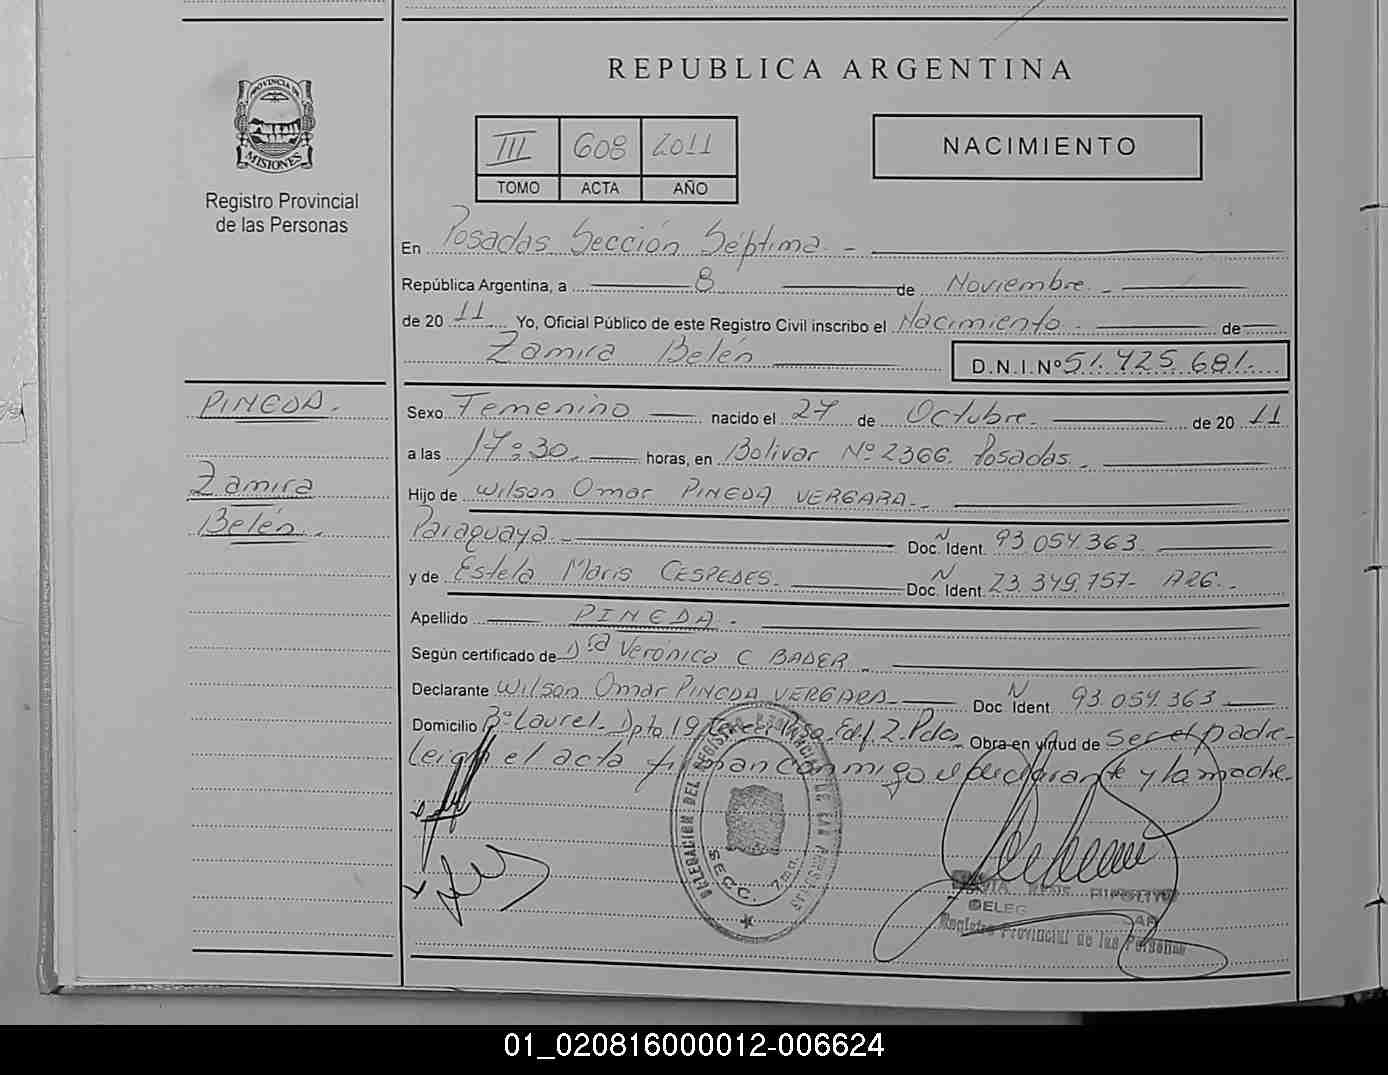 REPUBLICA ARGENTINA
PROVINCIA DE
MISIONES
Registro Provincial
de las Personas
III 608 2011
TOMO ACTA AÑO
NACIMIENTO
En Posadas Sección Séptima. -
República Argentina, a 8 de Noviembre. -
de 20 11 Yo, Oficial Público de este Registro Civil inscribo el Nacimiento. de
Zamira Belén D.N.I. Nº 51.425.681.
PINEDA.
Zamira
Belén.
Sexo Femenino nacido el 27 de Octubre. de 20 11
a las 17:30. horas, en Bolivar Nº 2366. Posadas.
Hijo de Wilson Omar PINEDA VERGARA.
Paraguaya. Doc. Ident. N 93.054.363.
y de Estela Maris CESPEDES. Doc. Ident. N 23.349.757- ARG.-
Apellido PINEDA.
Según certificado de Dra Verónica C BADER.
Declarante Wilson Omar PINEDA VERGARA Doc. Ident. N 93.054.363
Domicilio Bº Laurel. Dpto 19 Edf. 2. Pdas. Obra en virtud de ser el padre-
leida el acta firman conmigo el declarante y la madre.
DELEGACION DEL REGISTRO PROVINCIAL DE LAS PERSONAS
SECC. 7ma.
DELEG
Registro Provincial de las Personas
01_020816000012-006624